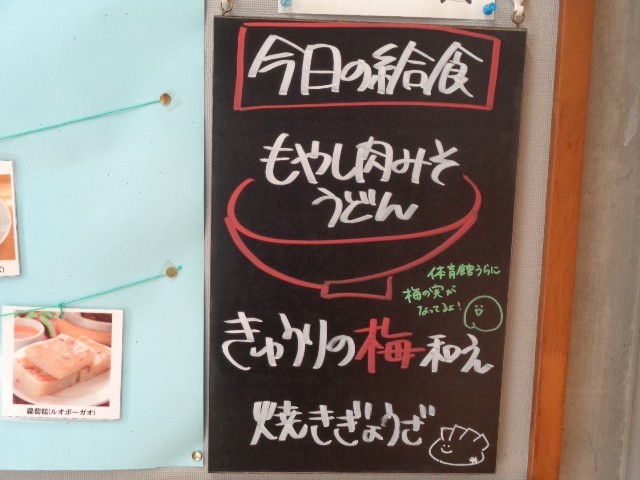 今日の給食
もやし肉みそ
うどん
体育館うらに
梅の実が
なってるよ!
きゅうりの梅和え
焼きぎょうざ
蘿蔔糕(ルオボーガオ)